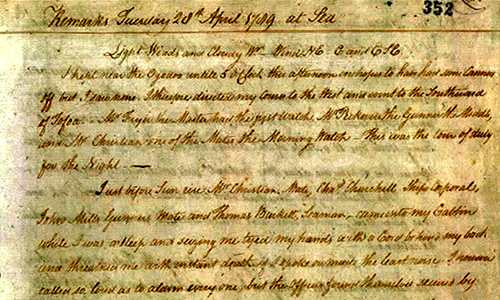 352
Remarks Tuesday 28th April 1789 at Sea
Light Winds and Cloudy Wr. Wind NE E and ESE
I kept near the Island untill 5 oClock this afternoon in hopes to have some Canoes
off but I saw none. I therefore directed my course to the West and went to the Southward
of Tofoa – Mr Fryer the Master had the first watch Mr Peckover the Gunner the Middle,
and Mr Christian one of the Mates the Morning Watch – This was the turn of duty
for the Night —
Just before Sun rise Mr Christian, Mate, Chas. Churchill, Ships Corporal,
John Mills, Gunners Mate and Thomas Burkett, Seaman, came into my Cabbin
while I was asleep and seizing me tyed my hands with a Cord behind my back
and threatned me with instant death if I spoke or made the least noise. I however
called so loud as to alarm every one, but the Officers found themselves secured by